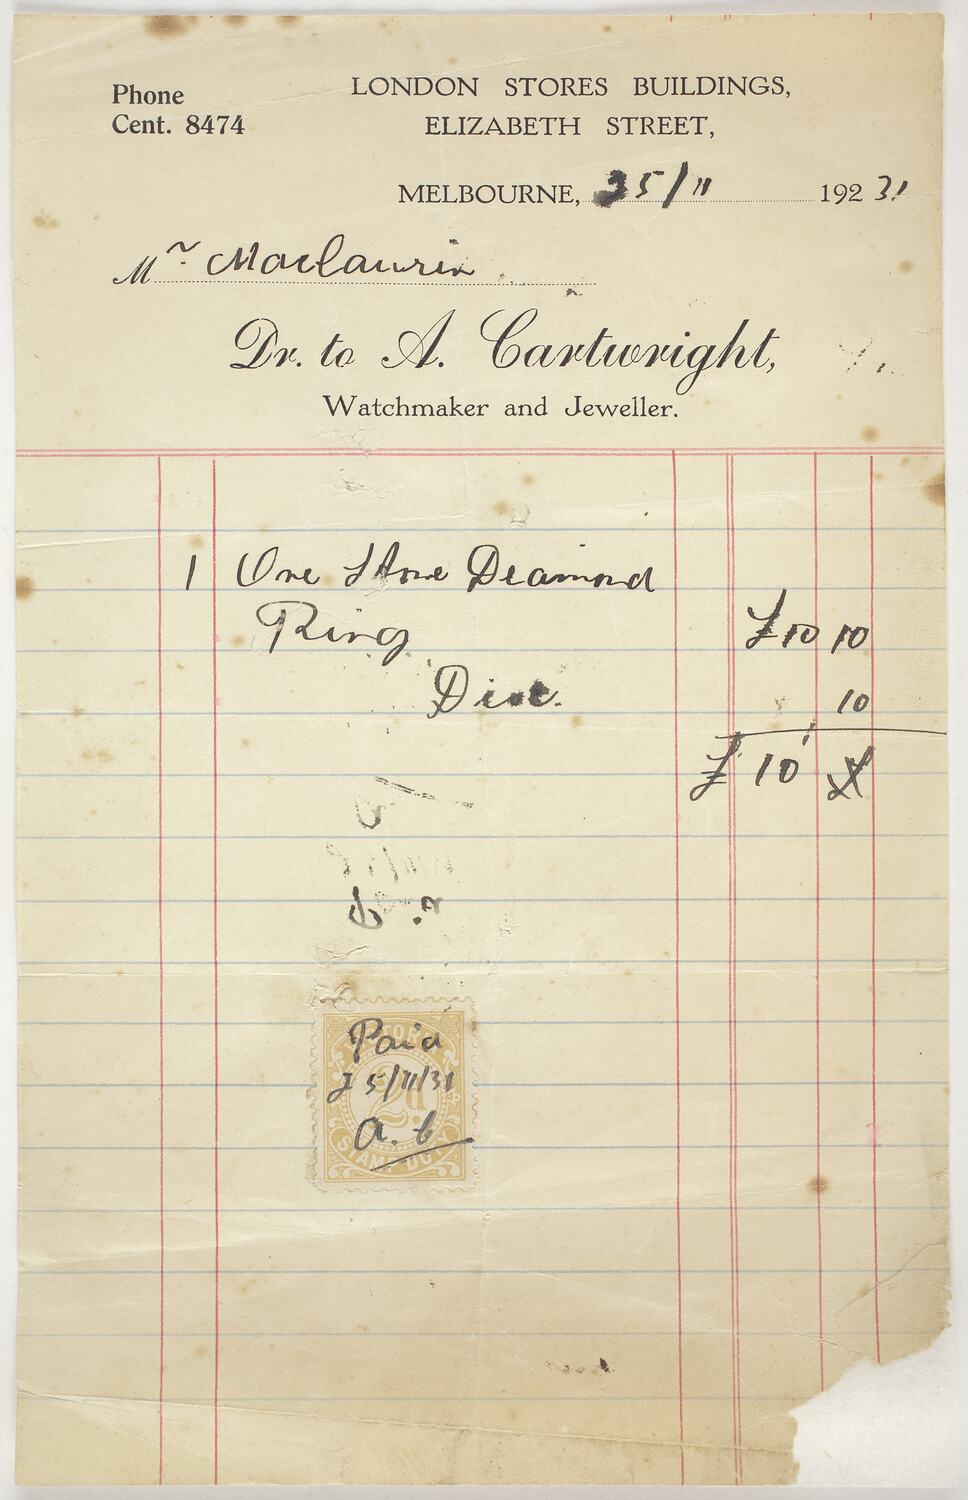 Phone
Cent. 8474
LONDON STORES BUILDINGS,
ELIZABETH STREET,
MELBOURNE, 25/11 192 31
Mr Maclaurin
Dr. to A. Cartwright,
Watchmaker and Jeweller.
1 One Stone Diamond
Ring £10 10
Disc. 10
£ 10
Paid
25/11/31
A. C
2d
STAMP DUTY